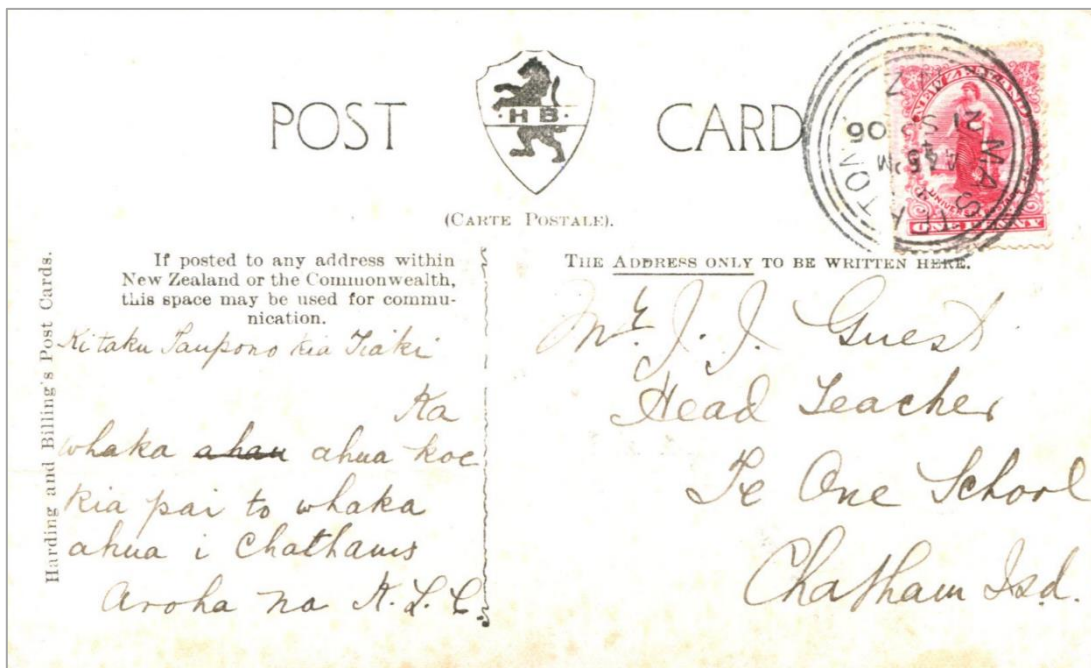 POST CARD
H B
(CARTE POSTALE).
Harding and Billing's Post Cards.
If posted to any address within
New Zealand or the Commonwealth,
this space may be used for commu-
nication.
Ki taku Taupono kia Tiaki
Ka
whaka ahau ahua koe
kia pai to whaka
ahua i Chathams
Aroha na
THE ADDRESS ONLY TO BE WRITTEN HERE.
Mr. J. J. Guest
Head Teacher
Te One School
Chatham Isd.
NEW ZEALAND
ONE PENNY
MASTERTON
N Z
21 SP 06